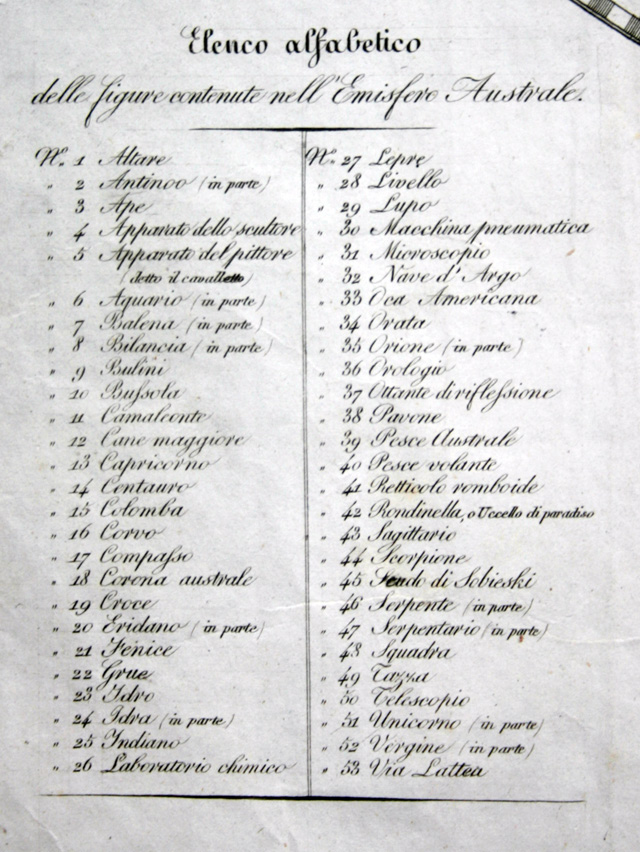 Elenco alfabetico
delle figure contenute nell'Emisfero Australe.
N.º 1 Altare
" 2 Antinoo (in parte)
" 3 Ape
" 4 Apparato dello scultore
" 5 Apparato del pittore
(detto il cavalletto)
" 6 Aquario (in parte)
" 7 Balena (in parte)
" 8 Bilancia (in parte)
" 9 Bulini
" 10 Bussola
" 11 Camaleonte
" 12 Cane maggiore
" 13 Capricorno
" 14 Centauro
" 15 Colomba
" 16 Corvo
" 17 Compasso
" 18 Corona australe
" 19 Croce
" 20 Eridano (in parte)
" 21 Fenice
" 22 Grue
" 23 Idro
" 24 Idra (in parte)
" 25 Indiano
" 26 Laboratorio chimico
N.º 27 Lepre
" 28 Livello
" 29 Lupo
" 30 Macchina pneumatica
" 31 Microscopio
" 32 Nave d'Argo
" 33 Oca Americana
" 34 Orata
" 35 Orione (in parte)
" 36 Orologio
" 37 Ottante di riflessione
" 38 Pavone
" 39 Pesce Australe
" 40 Pesce volante
" 41 Retticolo romboide
" 42 Rondinella, o Uccello di paradiso
" 43 Sagittario
" 44 Scorpione
" 45 Scudo di Sobieski
" 46 Serpente (in parte)
" 47 Serpentario (in parte)
" 48 Squadra
" 49 Tazza
" 50 Telescopio
" 51 Unicorno (in parte)
" 52 Vergine (in parte)
" 53 Via Lattea